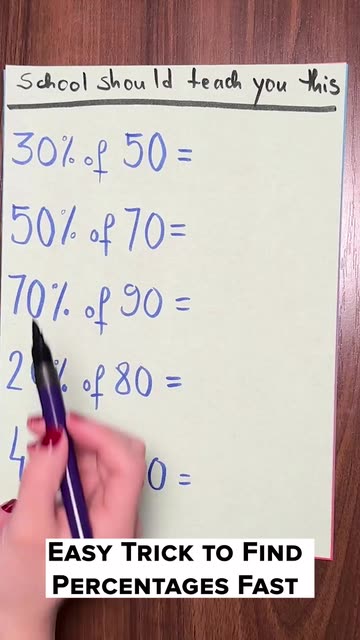 School should teach you this
30% of 50 =
50% of 70 =
70% of 90 =
% of 80 =
=
EASY TRICK TO FIND
PERCENTAGES FAST